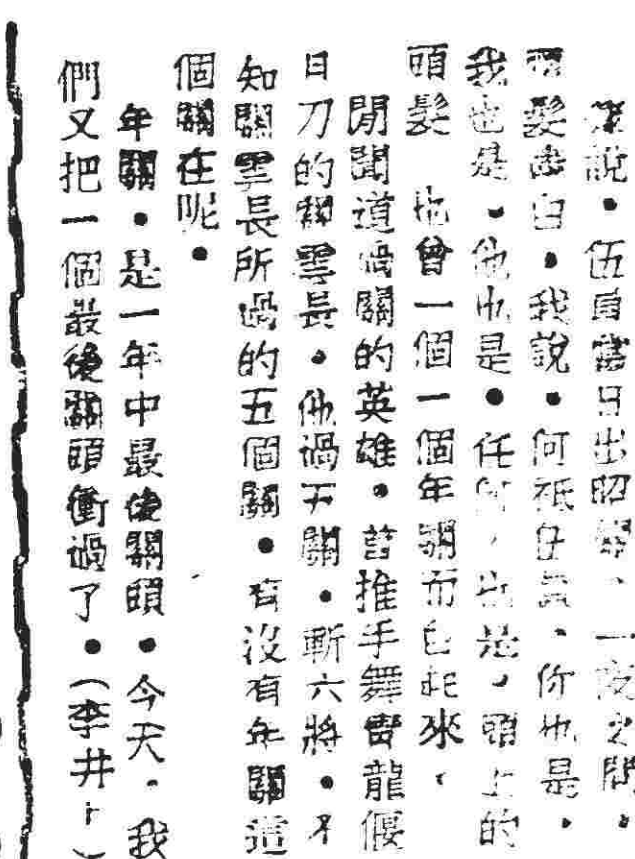 說．伍員當日出昭關、一夜之間．
頭髮盡白．我說．何祇伍員、你也是．
我也是．他也是．任何．也是．頭上的
頭髮　也曾一個一個年關而白起來．
閒聞道過關的英雄．首推手舞青龍偃
月刀的關雲長．他過五關．斬六將．不
知關雲長所過的五個關．有沒有年關這
個關在呢．
年關．是一年中最後關頭．今天．我
們又把一個最後關頭衝過了．（李井）